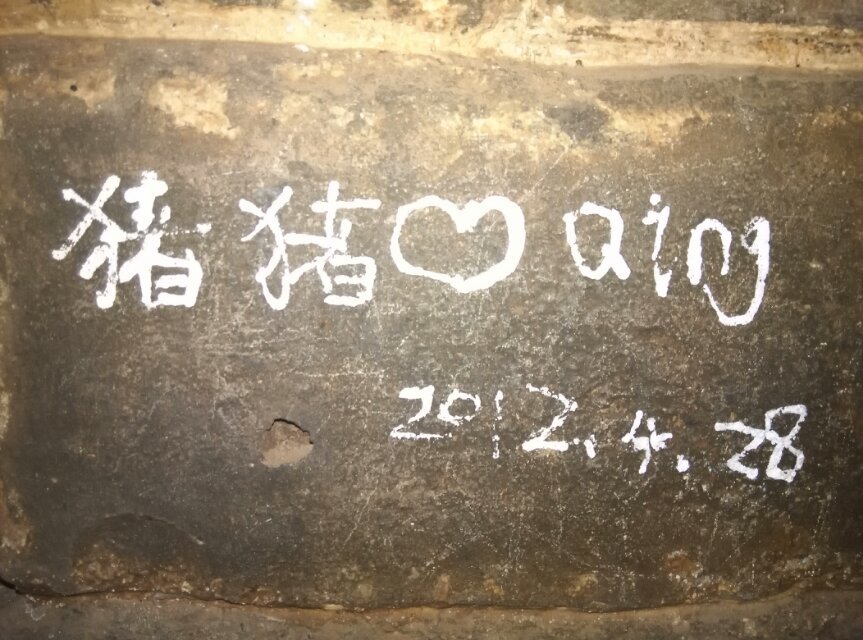 猪猪♡Qing
2012.4.28